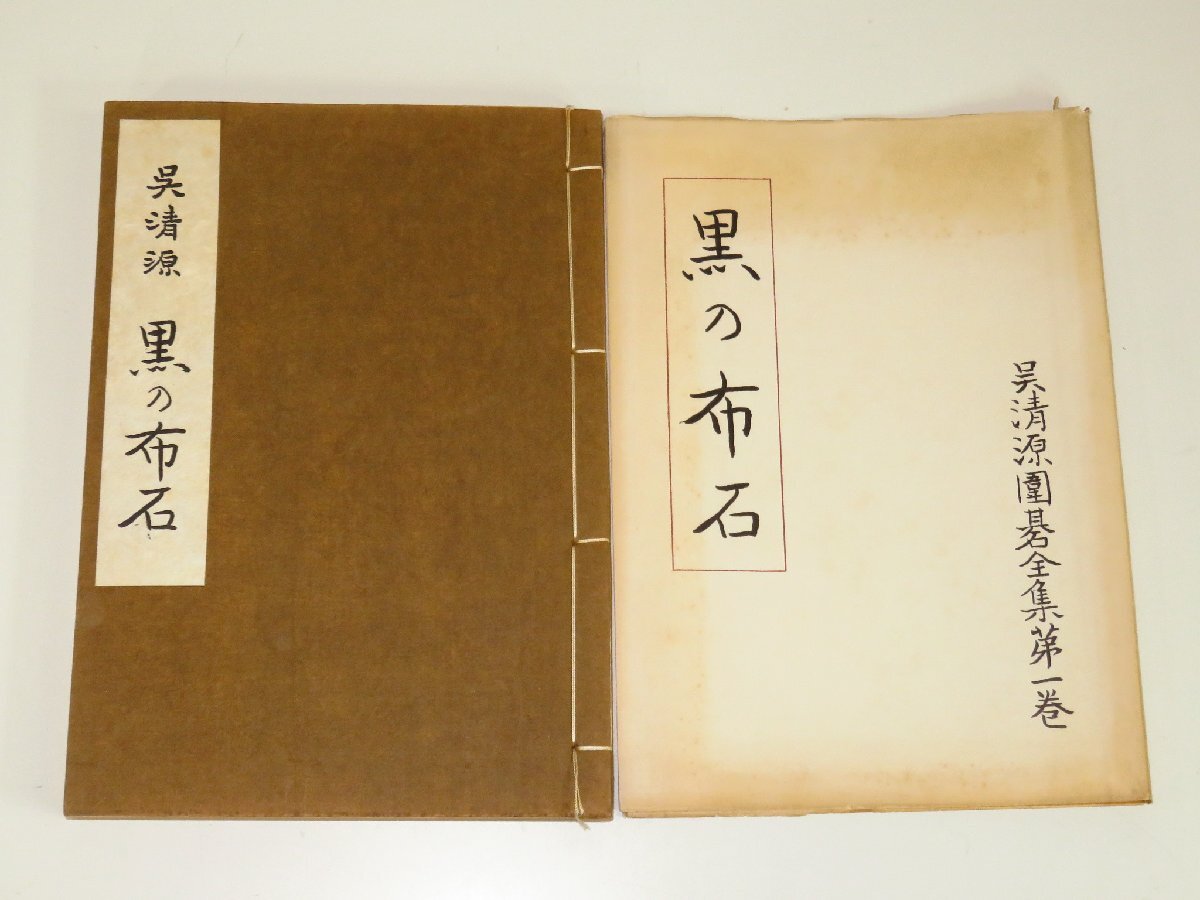 呉清源 黒の布石
黒の布石
呉清源圍碁全集第一巻